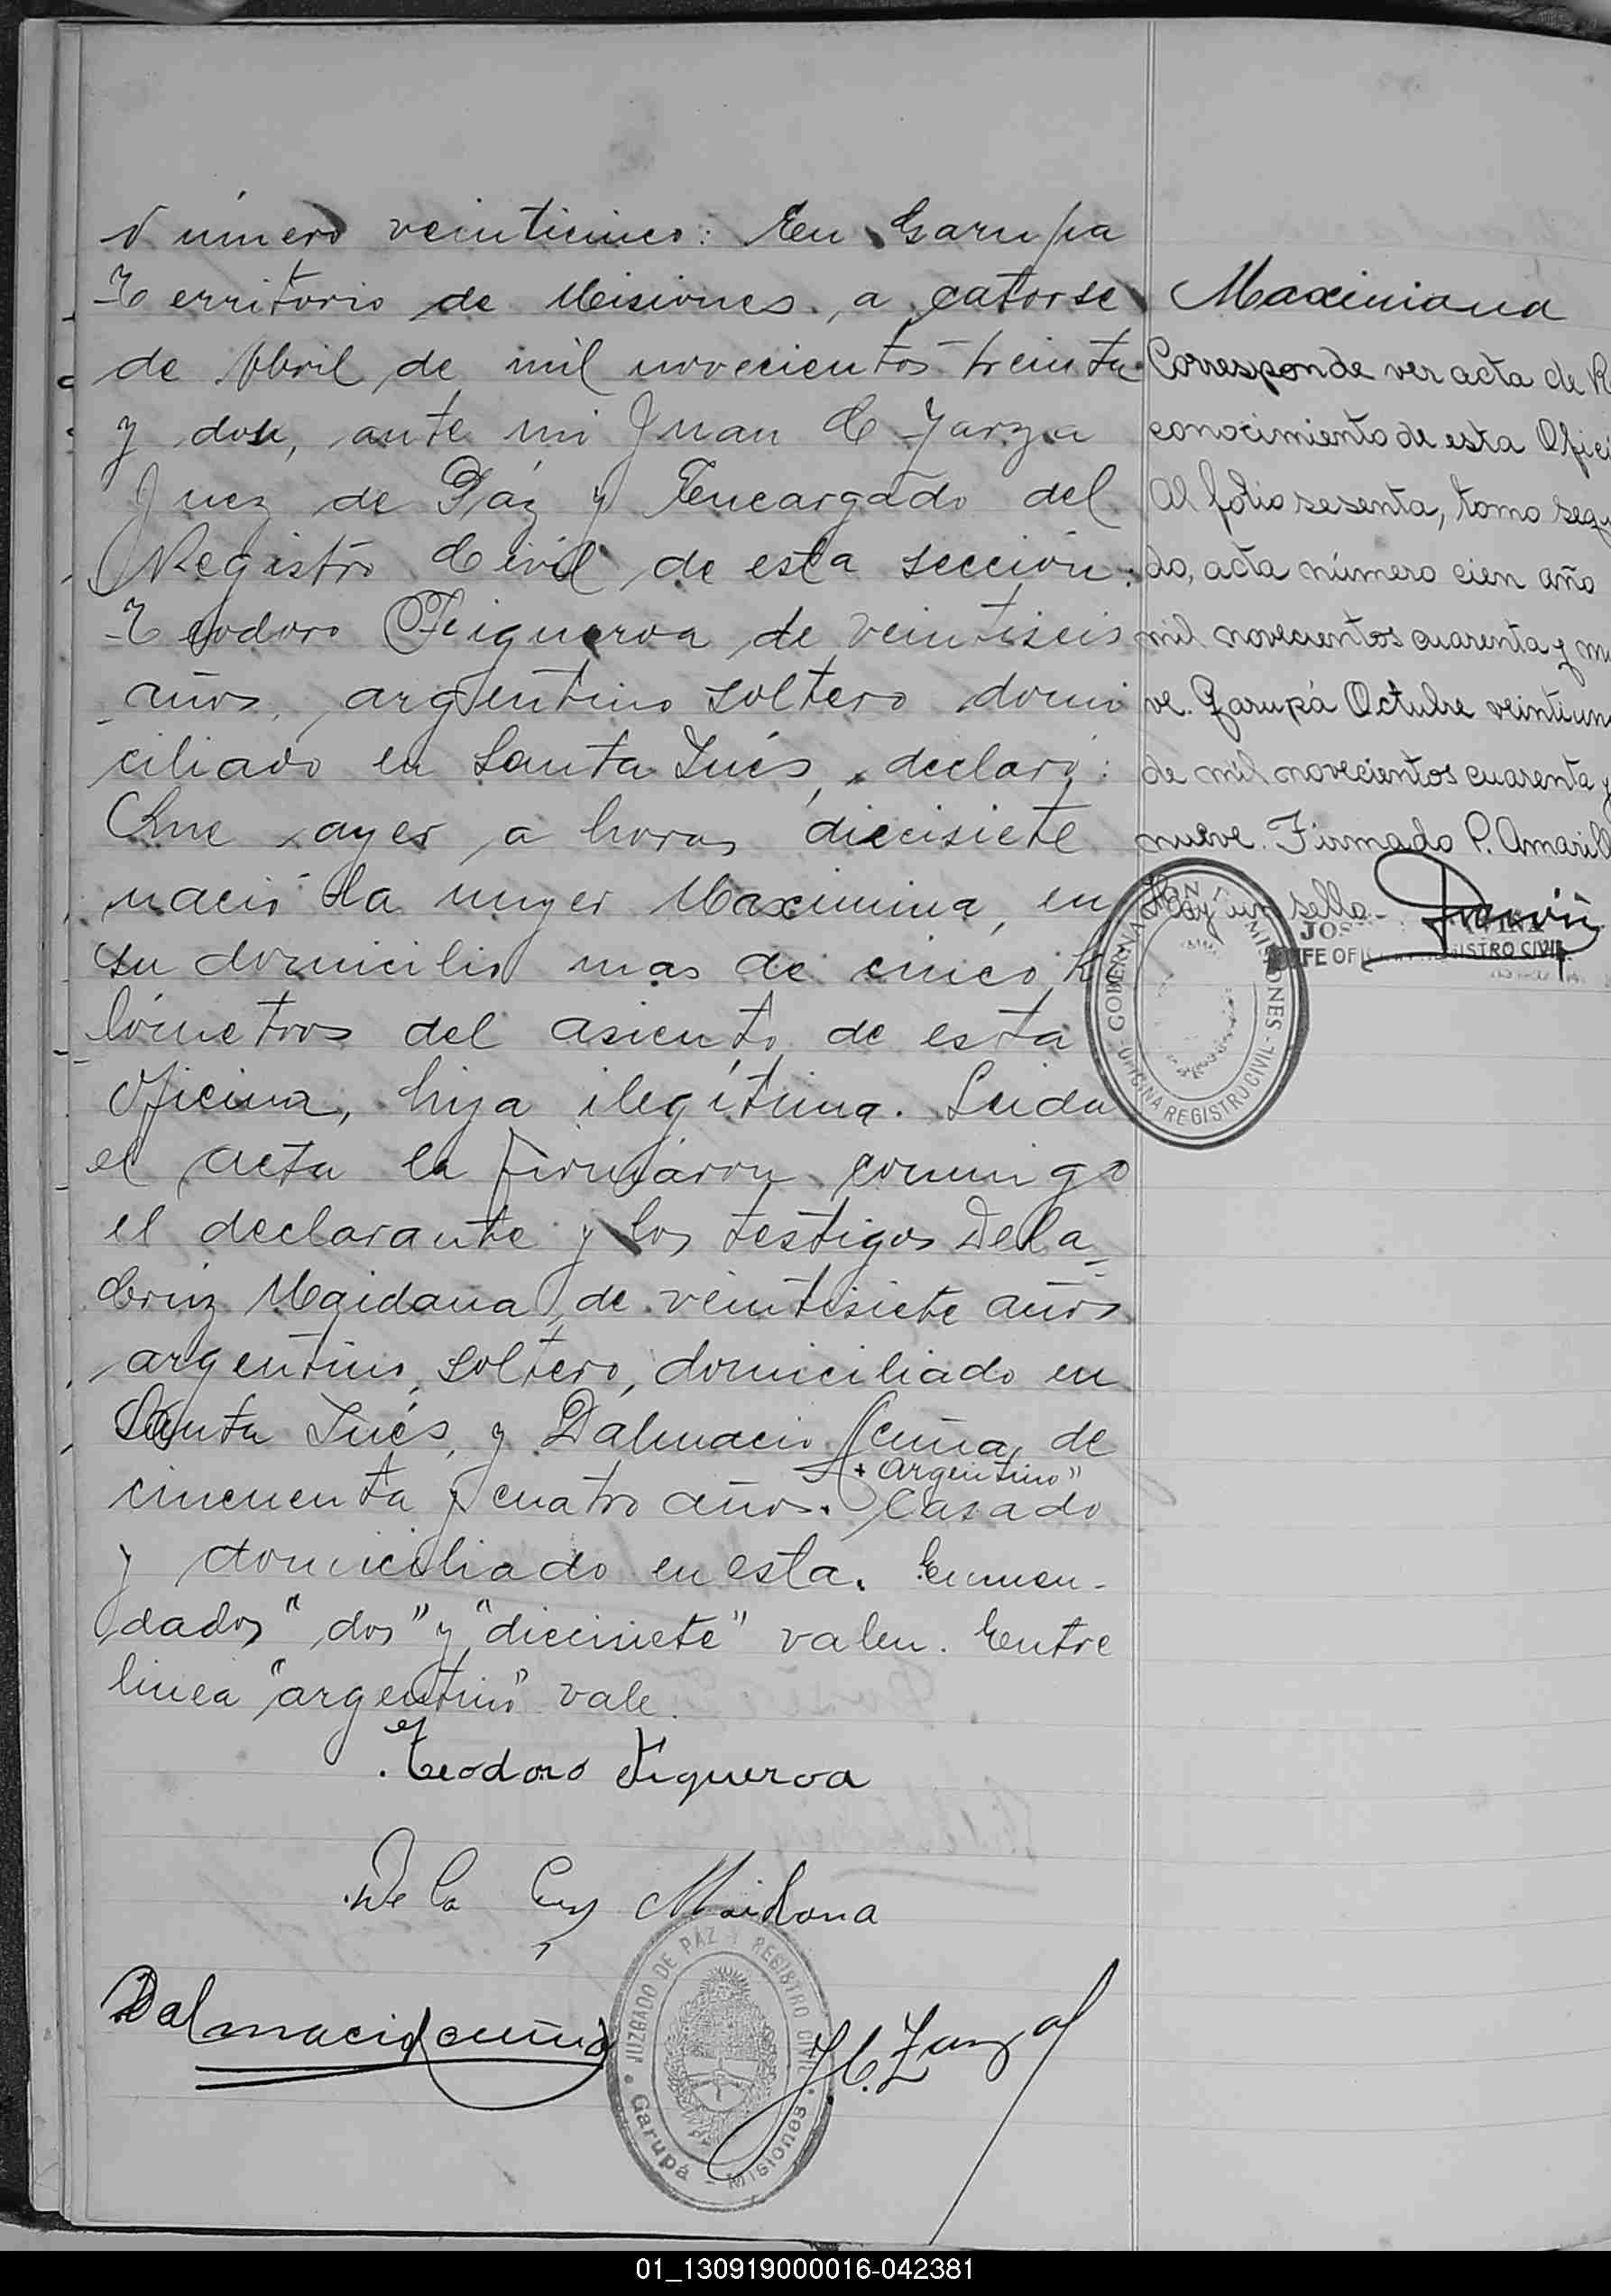 Número veinticinco: En Garupa
Territorio de Misiones, a catorse
de Abril de mil novecientos treinta
y dos, ante mi Juan C Zarza
Juez de Páz y Encargado del
Registro Civil de esta sección:
Teodoro Feigueroa de veintiseis
años, argentino soltero domi
ciliado en Santa Inés, declaró:
Que ayer a horas diecisiete
nació la muger Maximina, en
su domicilio mas de cinco ki
lómetros del asiento de esta
Oficina, hija ilegítima. Leida
el acta la firmáron comingo
el declarante y los testigos Dela
Cruz Maidana, de veintisiete años
argentino, soltero, domiciliado en
Santa Inés, y Dalmacio Acuña, de
+ argentino"
cincuenta y cuatro años. Casado
y domiciliado en esta. Enmen-
dados "dos" y "diecisiete" valen. Entre
linea "argentino" vale.
Teodoro Figueroa
De la Cruz Maidana
Dalmacio Acuña
J.C. Zarza
JUZGADO DE PAZ Y REGISTRO CIVIL
Garupá - Misiones
Maximiana
Corresponde ver acta de R
conocimiento de esta Ofici
al folio sesenta, tomo segu
do, acta número cien año
mil novecientos cuarenta y nu
ve. Garupá Octubre veintiun
de mil novecientos cuarenta y
nueve. Firmado P. Amarill
Hay un sello-
JOS
JEFE OF REGISTRO CIVIL
GOBERNACION DE MISIONES - OFICINA REGISTRO CIVIL -
01_130919000016-042381